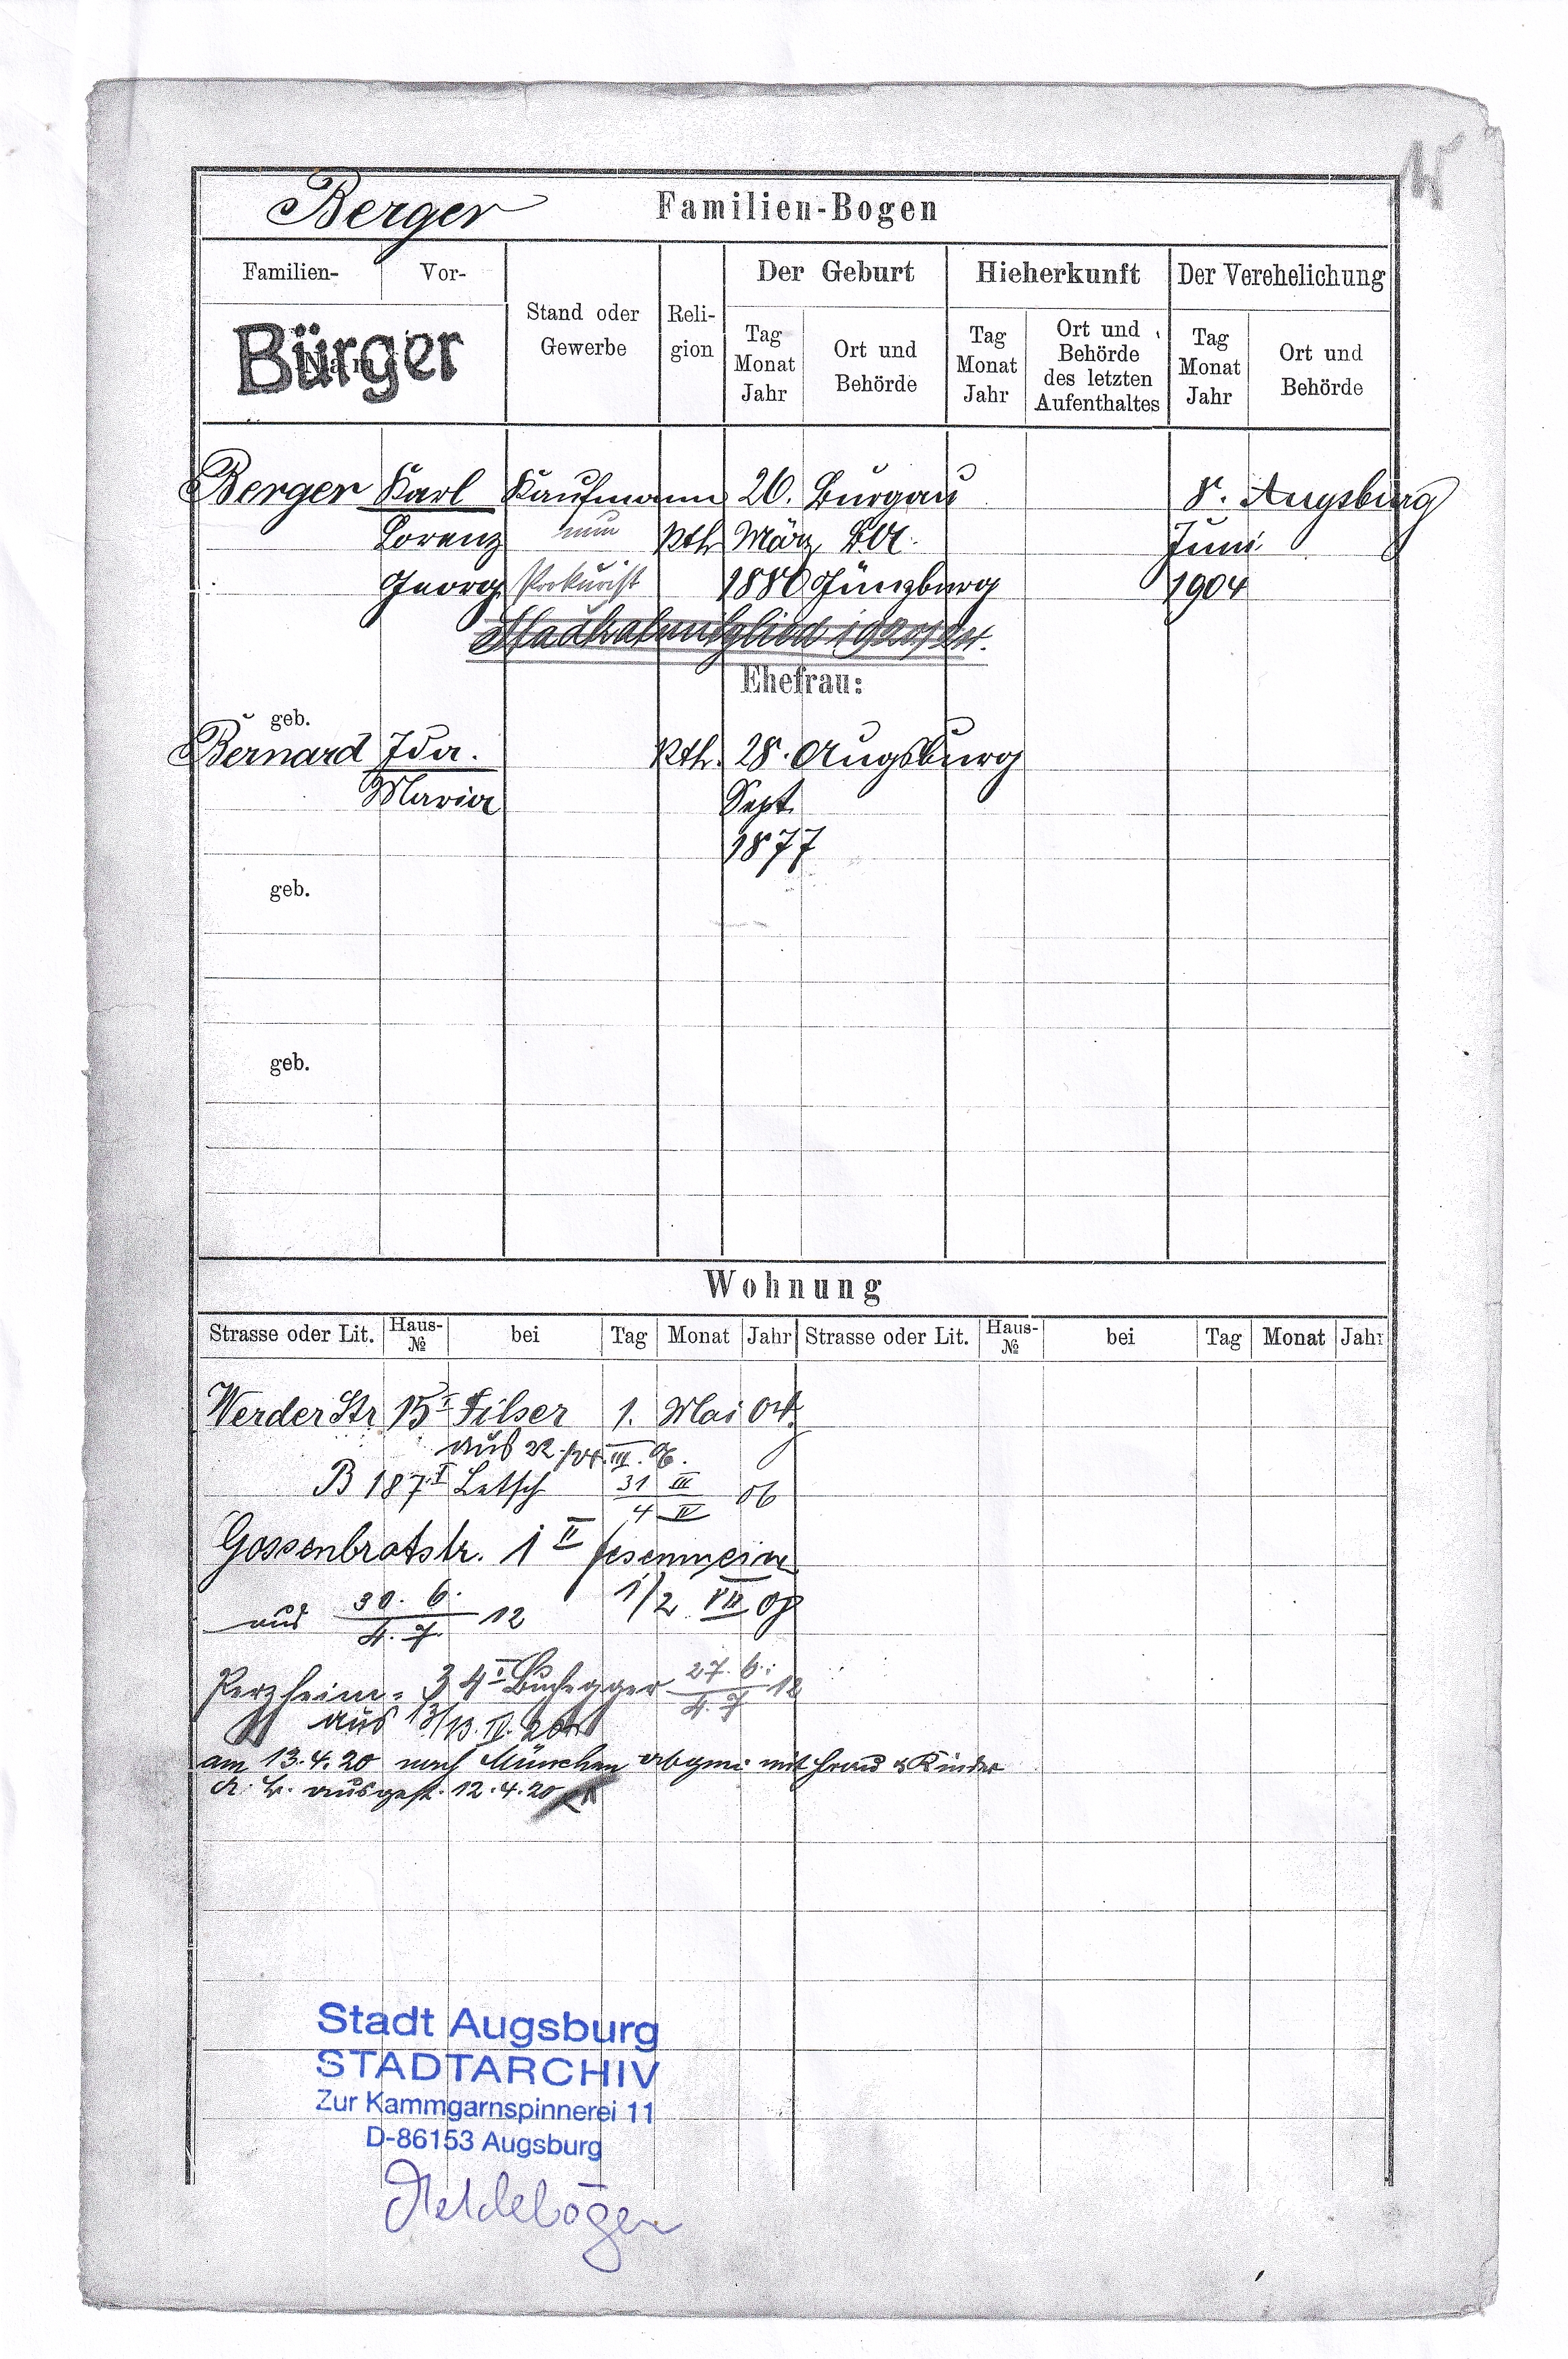 Berger Familien-Bogen
Familien- Vor- Stand oder Gewerbe Reli- gion Der Geburt Hieherkunft Der Verehelichung
Bürger
Tag Monat Jahr Ort und Behörde Tag Monat Jahr Ort und Behörde des letzten Aufenthaltes Tag Monat Jahr Ort und Behörde
Berger Karl Kaufmann 20. Burgau 8. Augsburg
Lorenz nun Kth. März BA. Juni
Georg Prokurist 1880 Günzburg 1904
Ehefrau:
geb.
Bernard Ida. Kth. 28. Augsburg
Maria Sept.
1877
geb.
geb.
Wohnung
Strasse oder Lit. Haus- № bei Tag Monat Jahr Strasse oder Lit. Haus- № bei Tag Monat Jahr
Werder Str 15 I Filser 1. Mai 04.
aus 22./24. III. 06.
B 187 I Letsch 31 III / 4 IV 06
Gossenbrotstr. 1 II
1/2 VII 08
aus 30. 6. / 4. 7. 12
Perzheim- 34 I Buchegger 27. 6. / 4. 7 12
aus 13/13. IV. 20
am 13.4.20 nach München mit Frau & Kinder
ausgest. 12.4.20
Stadt Augsburg
STADTARCHIV
Zur Kammgarnspinnerei 11
D-86153 Augsburg
Meldebögen